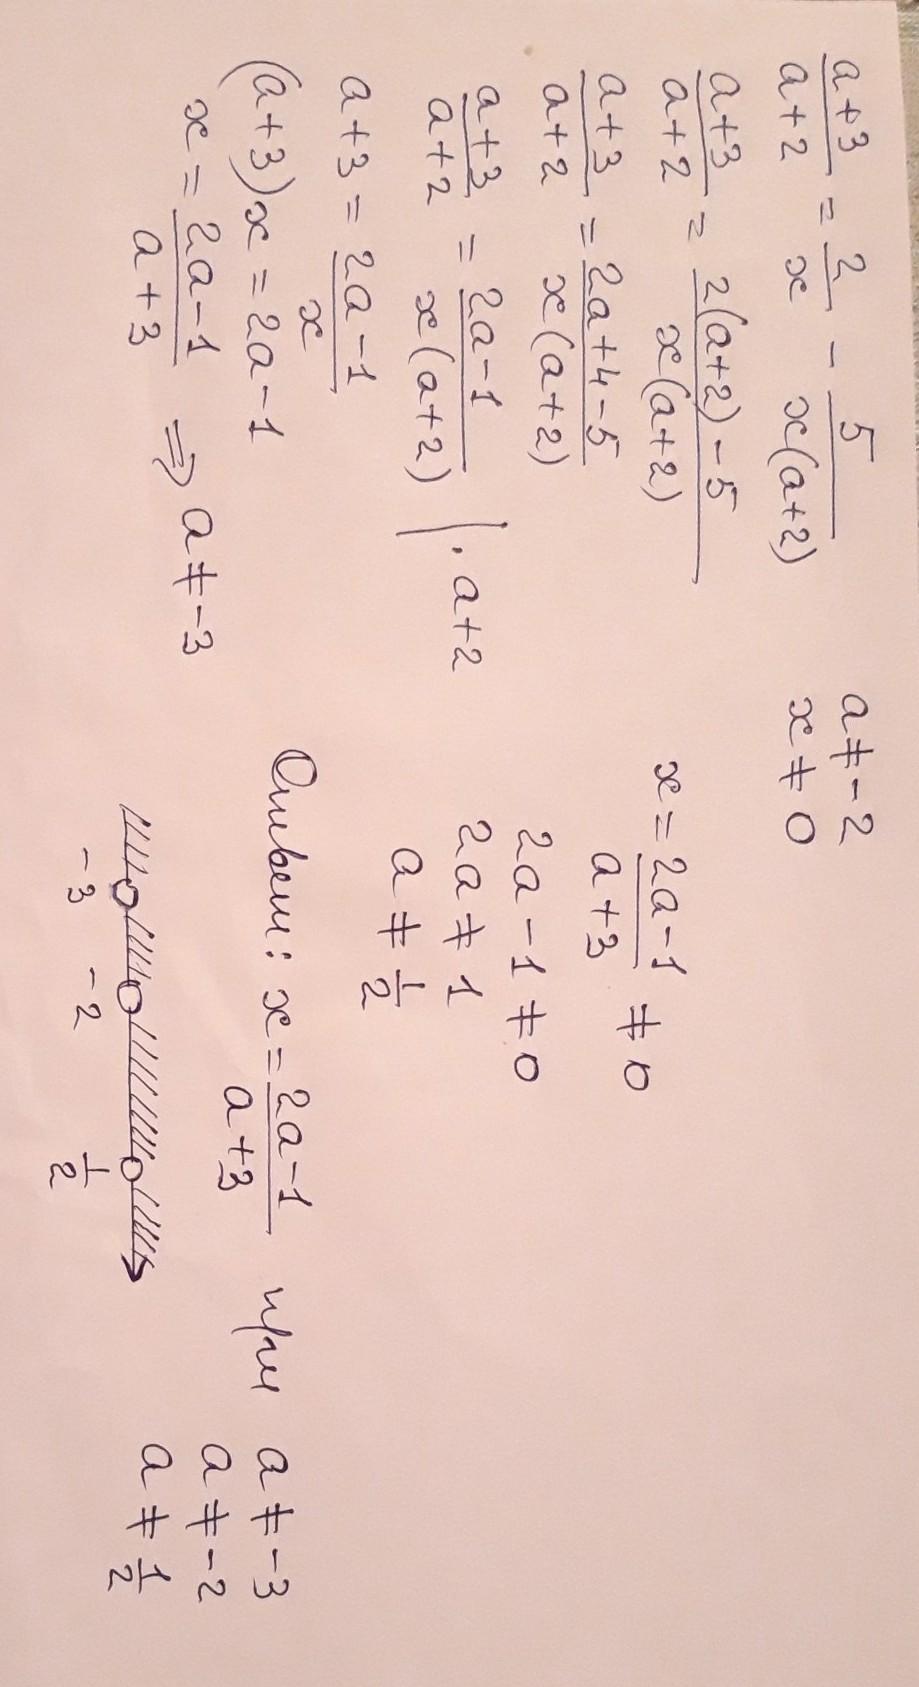 a+3/a+2 = 2/x - 5/x(a+2)
a ≠ -2
x ≠ 0
a+3/a+2 = 2(a+2)-5/x(a+2)
a+3/a+2 = 2a+4-5/x(a+2)
a+3/a+2 = 2a-1/x(a+2) | · a+2
a+3 = 2a-1/x
(a+3)x = 2a-1
x = 2a-1/a+3 ⇒ a ≠ -3
x = 2a-1/a+3 ≠ 0
2a-1 ≠ 0
2a ≠ 1
a ≠ 1/2
Ответ: x = 2a-1/a+3 при a ≠ -3
a ≠ -2
a ≠ 1/2
-3 -2 1/2